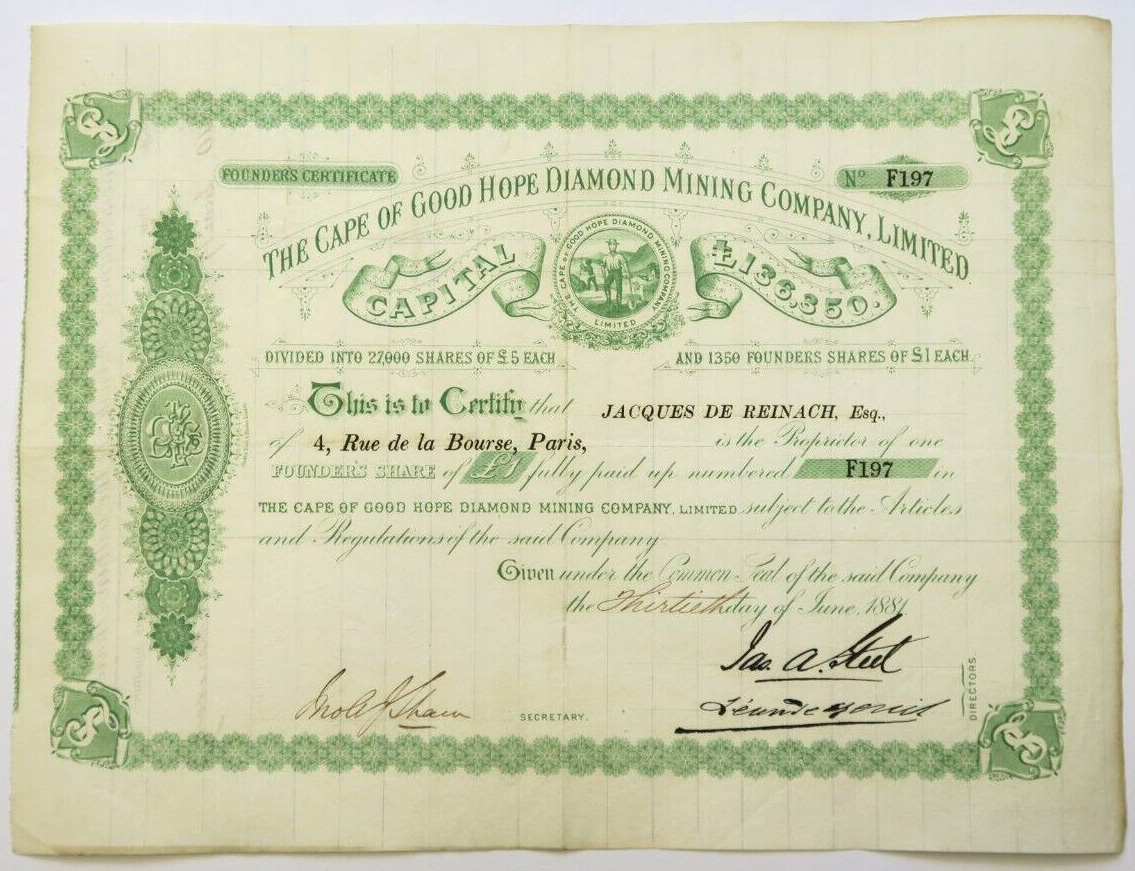 FOUNDER'S CERTIFICATE
Nº F197
THE CAPE OF GOOD HOPE DIAMOND MINING COMPANY, LIMITED
CAPITAL £136,350.
THE CAPE OF GOOD HOPE DIAMOND MINING COMPANY
LIMITED
DIVIDED INTO 27,000 SHARES OF £5 EACH
AND 1350 FOUNDERS SHARES OF £1 EACH
This is to Certify that JACQUES DE REINACH, Esq.,
of 4, Rue de la Bourse, Paris, is the Proprietor of one
FOUNDER'S SHARE of £1 fully paid up numbered F197 in
THE CAPE OF GOOD HOPE DIAMOND MINING COMPANY, LIMITED subject to the Articles
and Regulations of the said Company
Given under the Common Seal of the said Company
the Thirtieth day of June, 1881
Jas. A. Steel
DIRECTORS.
SECRETARY.